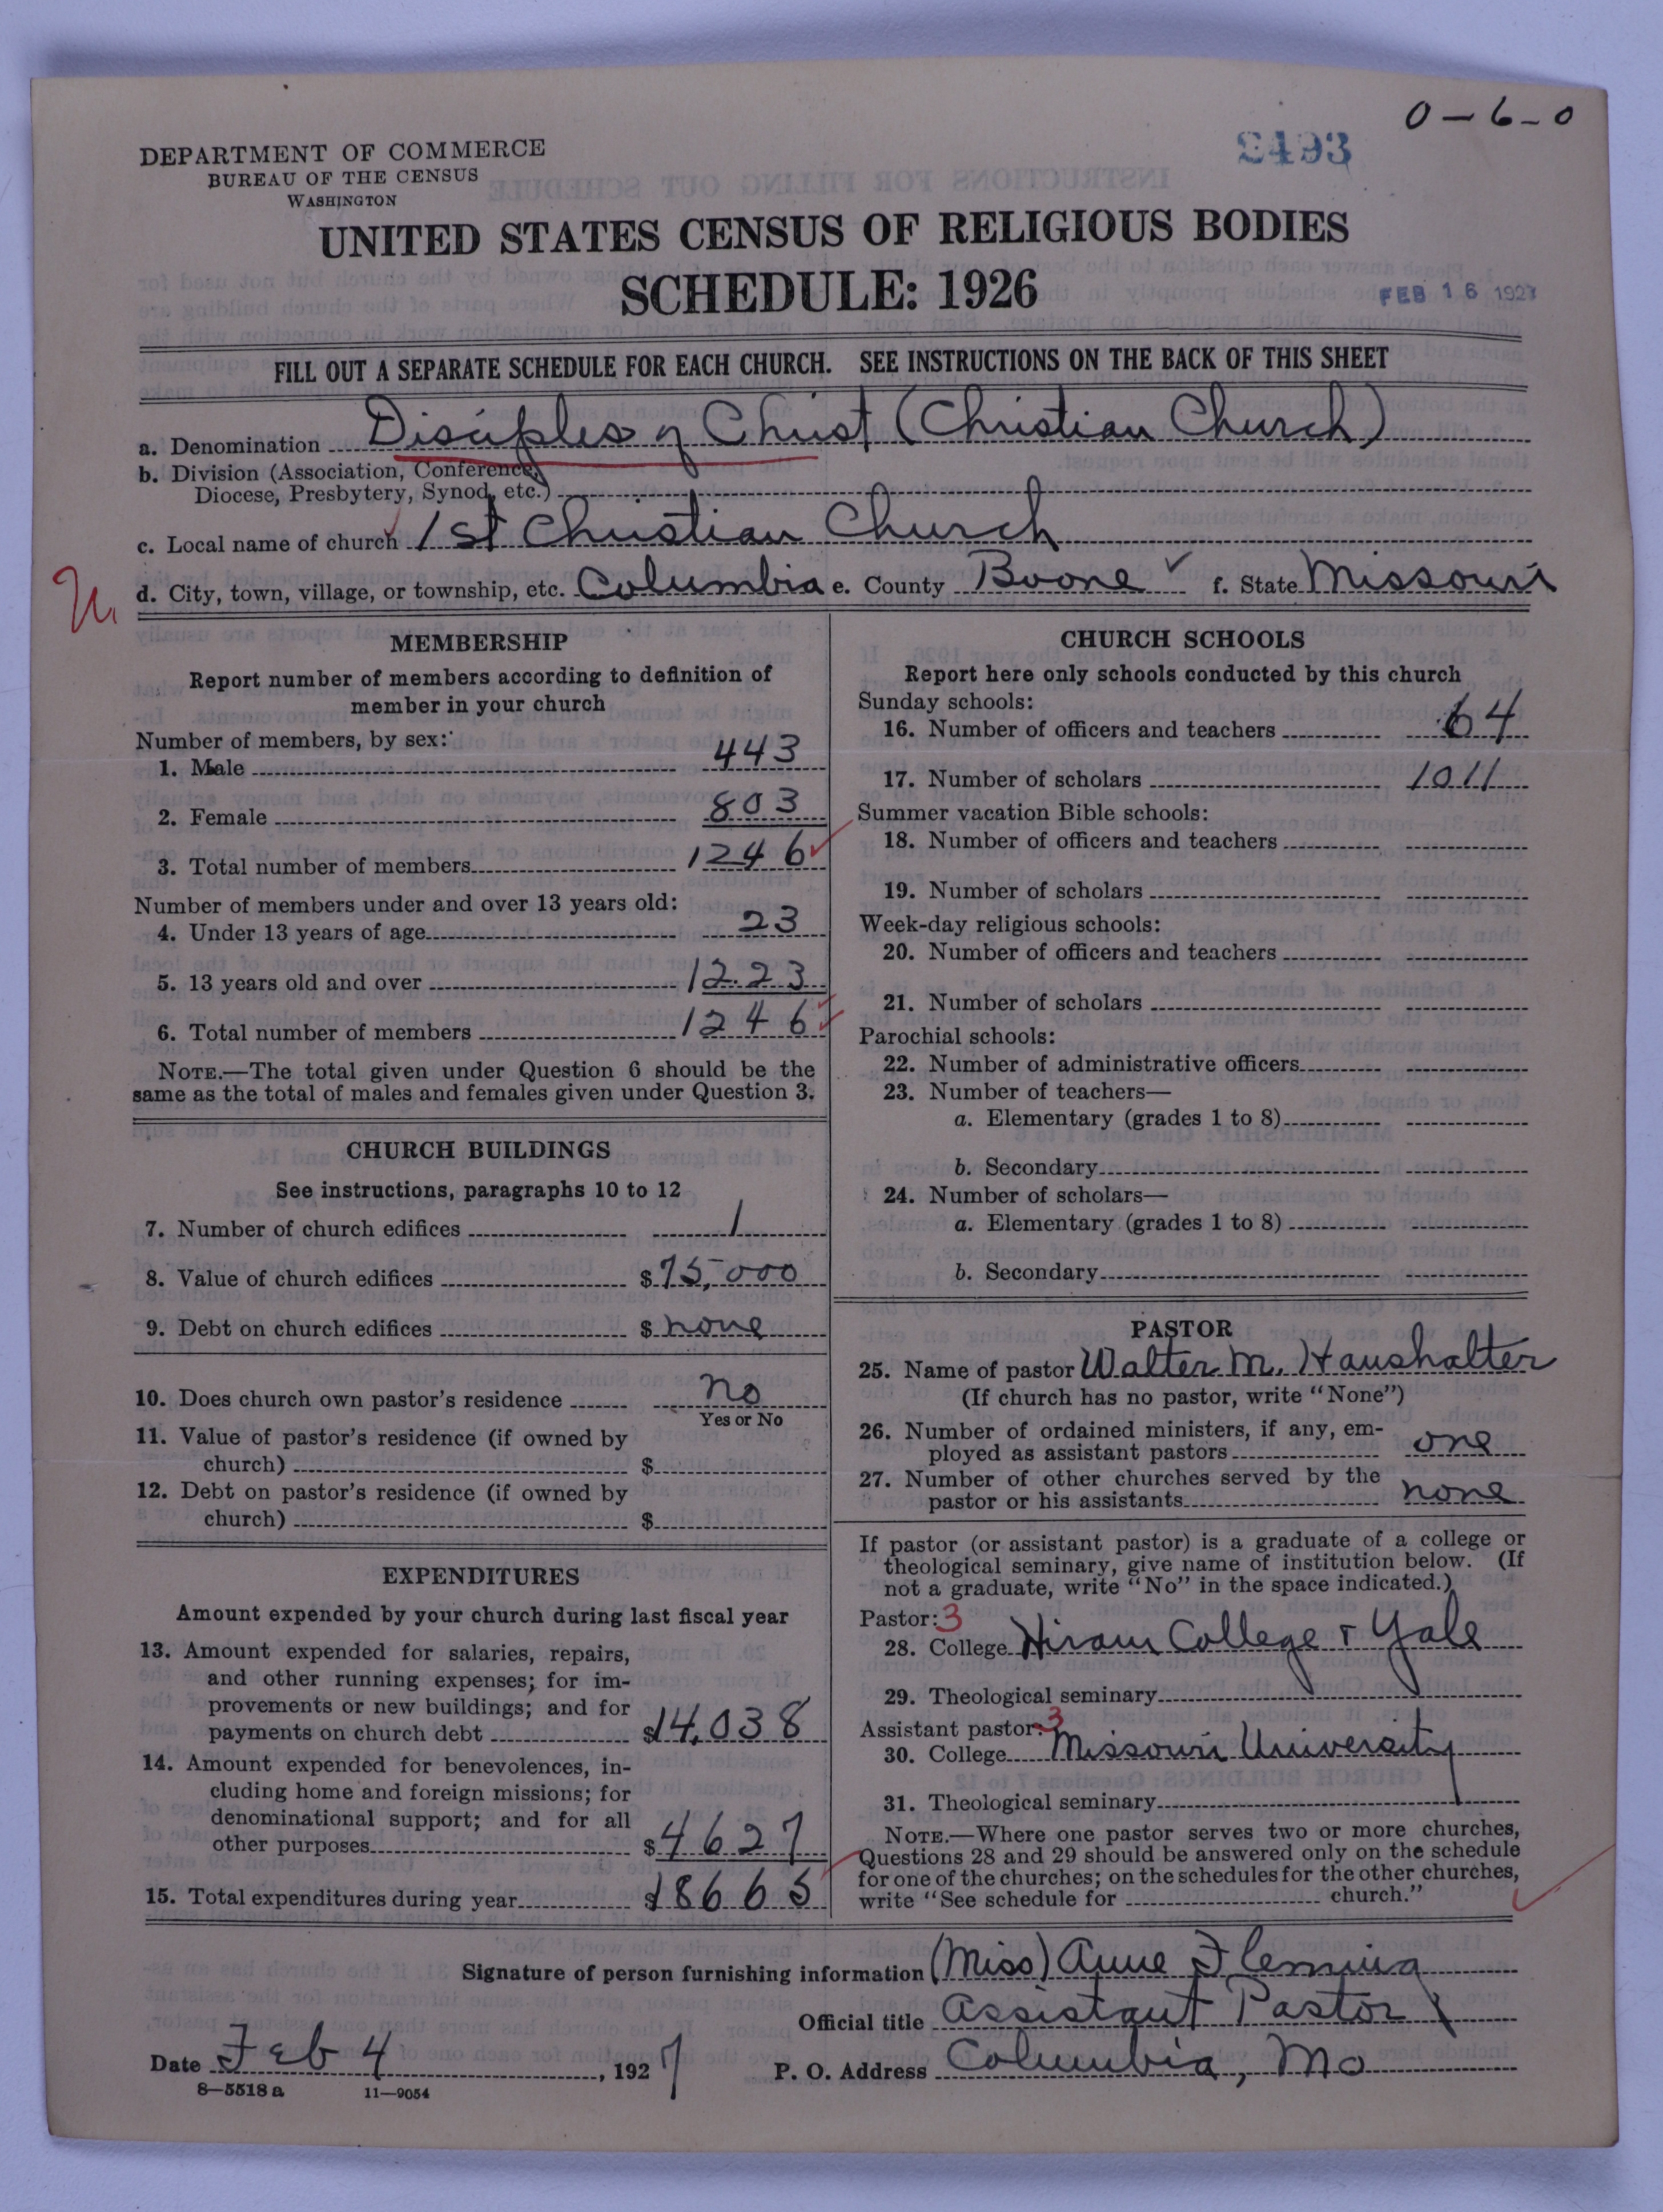 0-6-0
2493
DEPARTMENT OF COMMERCE
BUREAU OF THE CENSUS
WASHINGTON
UNITED STATES CENSUS OF RELIGIOUS BODIES
SCHEDULE: 1926
FEB 16 1927
FILL OUT A SEPARATE SCHEDULE FOR EACH CHURCH. SEE INSTRUCTIONS ON THE BACK OF THIS SHEET
a. Denomination Disciples of Christ (Christian Church)
b. Division (Association, Conference,
Diocese, Presbytery, Synod, etc.)
c. Local name of church 1st Christian Church
d. City, town, village, or township, etc. Columbia e. County Boone f. State Missouri
MEMBERSHIP
Report number of members according to definition of
member in your church
Number of members, by sex:
1. Male 443
2. Female 803
3. Total number of members 1246
Number of members under and over 13 years old:
4. Under 13 years of age 23
5. 13 years old and over 1223
6. Total number of members 1246
NOTE.—The total given under Question 6 should be the
same as the total of males and females given under Question 3.
CHURCH BUILDINGS
See instructions, paragraphs 10 to 12
7. Number of church edifices 1
8. Value of church edifices $ 75,000
9. Debt on church edifices $ none
10. Does church own pastor's residence no
Yes or No
11. Value of pastor's residence (if owned by
church) $
12. Debt on pastor's residence (if owned by
church) $
EXPENDITURES
Amount expended by your church during last fiscal year
13. Amount expended for salaries, repairs,
and other running expenses; for im-
provements or new buildings; and for
payments on church debt $14,038
14. Amount expended for benevolences, in-
cluding home and foreign missions; for
denominational support; and for all
other purposes $4627
15. Total expenditures during year $18665
CHURCH SCHOOLS
Report here only schools conducted by this church
Sunday schools:
16. Number of officers and teachers 64
17. Number of scholars 1011
Summer vacation Bible schools:
18. Number of officers and teachers
19. Number of scholars
Week-day religious schools:
20. Number of officers and teachers
21. Number of scholars
Parochial schools:
22. Number of administrative officers
23. Number of teachers—
a. Elementary (grades 1 to 8)
b. Secondary
24. Number of scholars—
a. Elementary (grades 1 to 8)
b. Secondary
PASTOR
25. Name of pastor Walter M. Haushalter
(If church has no pastor, write "None")
26. Number of ordained ministers, if any, em-
ployed as assistant pastors one
27. Number of other churches served by the
pastor or his assistants none
If pastor (or assistant pastor) is a graduate of a college or
theological seminary, give name of institution below. (If
not a graduate, write "No" in the space indicated.)
Pastor: 3
28. College Hiram College & Yale
29. Theological seminary
Assistant pastor: 3
30. College Missouri University
31. Theological seminary
NOTE.—Where one pastor serves two or more churches,
Questions 28 and 29 should be answered only on the schedule
for one of the churches; on the schedules for the other churches,
write "See schedule for church."
Signature of person furnishing information (Miss) Anne Fleming
Official title Assistant Pastor
Date Feb 4, 1927 P. O. Address Columbia, Mo
8—5518 a 11—9054